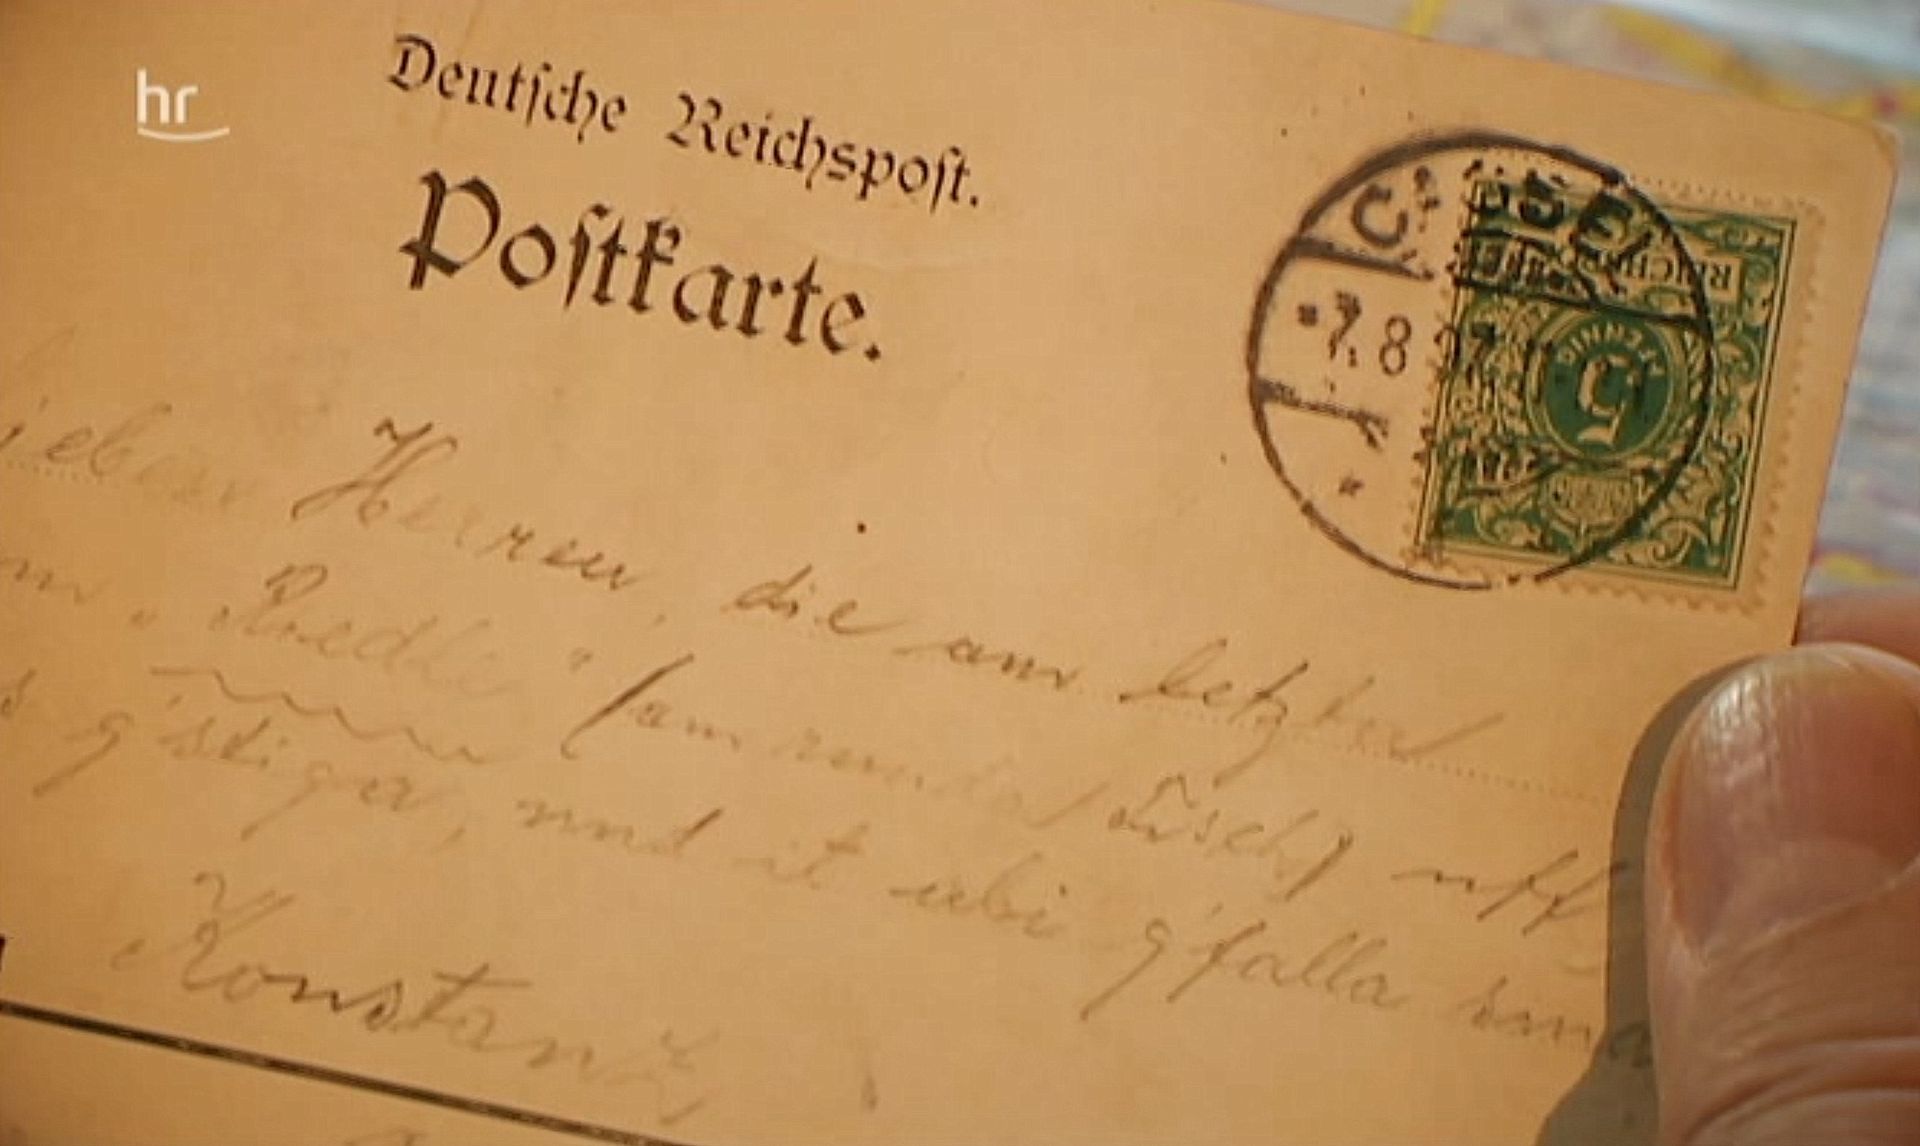 hr
Deutsche Reichspost.
Postkarte.
CASSEL
7.8 97
REICHSPOST
5
PFENNIG
Herren, die am letzten
"Riedle" (am runda Tisch) uff
g'stiga, und it abi g'falla sin
Konstanz